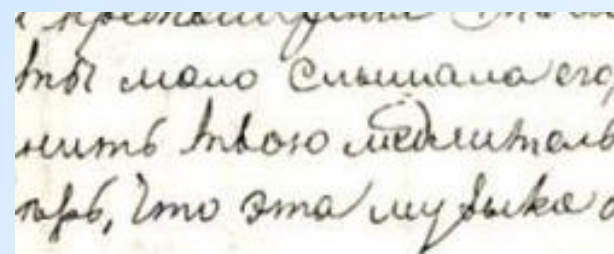 ты мало слышала его
нить твою медлитель
что эта музыка